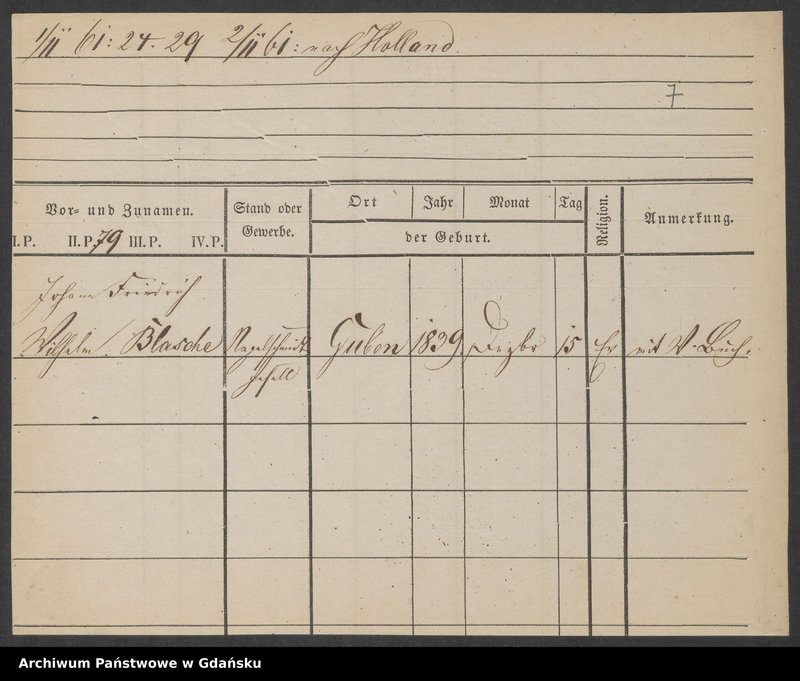 1/II 61: 24. 29 2/II 61: nach Holland.
7
Vor- und Zunamen.
I.P. II.P. 79 III.P. IV.P.
Stand oder
Gewerbe.
Ort Jahr Monat Tag
der Geburt.
Religion.
Anmerkung.
Johann Friedrich
Wilhelm Blasche Nagelschmidt Guben 1839 Dezbr 15 Ev mit W-Buch.
gesell
Archiwum Państwowe w Gdańsku